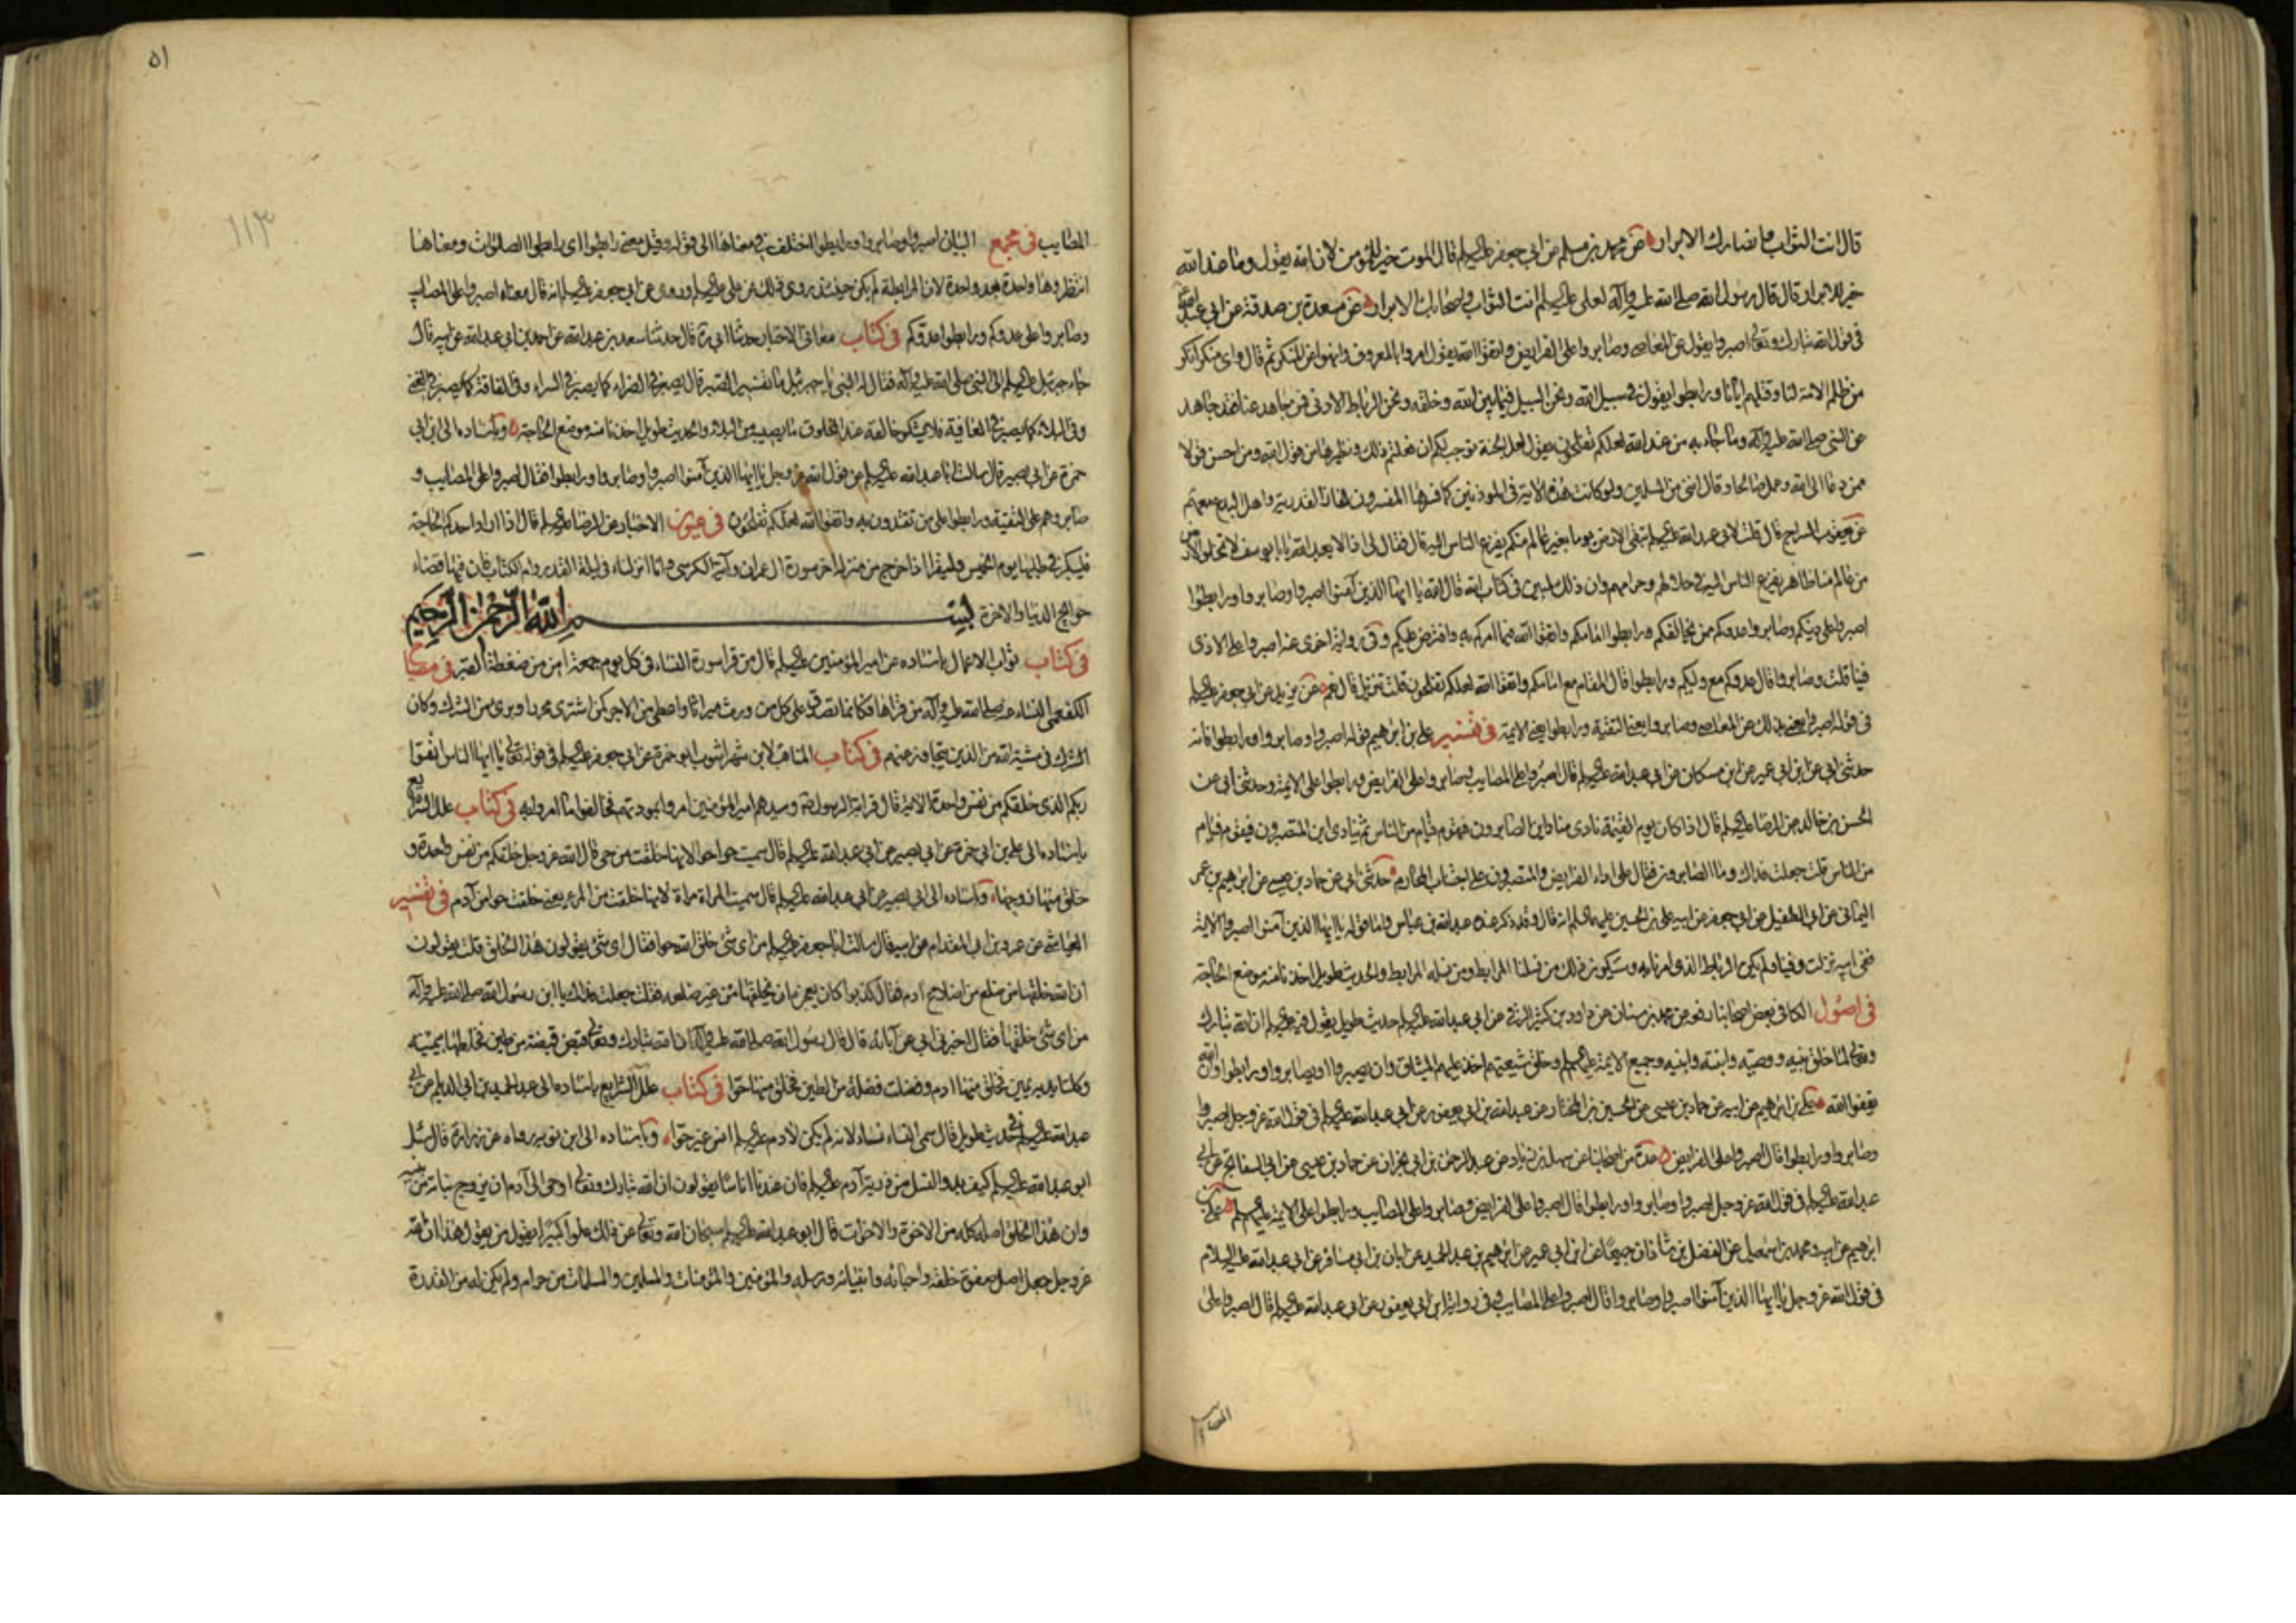 قال انت الثواب وانصارك الابرار عن محمد بن مسلم عن ابي جعفر عليه السلم قال الموت خير للمؤمن لان الله يقول وما عند الله
خير للابرار قال قال رسول الله صلى الله عليه وآله لعلى عليه السلم انت الثواب واصحابك الابرار عن مسعدة بن صدقة عن ابي عبد الله
فى قول الله تبارك وتعالى اصبروا يقول عن المعاصى وصابروا على الفرايض واتقوا الله يقول امروا بالمعروف وانهوا عن المنكر ثم قال واى منكر انكر
من ظلم الامة لنا وقتلهم ايانا ورابطوا يقول فى سبيل الله ونحن السبيل فيما بين الله وخلقه ونحن الرباط الادنى فمن جاهد عنا فقد جاهد
عن النبى صلى الله عليه وآله وما جاء به من عند الله لعلكم تفلحون يقول لعل الجنة توجب لكم ان فعلتم ذلك ونظيرها من قول الله ومن احسن قولا
ممن دعا الى الله وعمل صالحا وقال اننى من المسلمين ولو كانت هذه الاية فى المؤذنين كما فسرها المفسرون لفاز القدرية واهل البدع معهم
عن يعقوب السراج قال قلت لابى عبد الله عليه السلم تبقى الارض يوما بغير عالم منكم يفزع الناس اليه قال فقال لى اذا لا يعبد الله يا با يوسف لا تخلو الارض
من عالم منا ظاهر يفزع الناس اليه فى حلالهم وحرامهم وان ذلك لمبين فى كتاب الله قال الله يا ايها الذين آمنوا اصبروا وصابروا ورابطوا
اصبروا على دينكم وصابروا عدوكم ممن يخالفكم ورابطوا امامكم واتقوا الله فيما امركم به وافترض عليكم وفى رواية اخرى عنه اصبروا على الاذى
فينا قلت وصابروا قال عدوكم مع وليكم ورابطوا قال المقام مع امامكم واتقوا الله لعلكم تفلحون قلت تنزيل قال نعم عن بريد عن ابي جعفر عليه السلم
فى قوله اصبروا يعنى بذلك عن المعاصى وصابروا يعنى التقية ورابطوا يعنى الائمة فى تفسير على بن ابرهيم قوله اصبروا وصابروا ورابطوا فانه
حدثنى ابي عن ابن ابي عمير عن ابن مسكان عن ابي عبد الله عليه السلم قال اصبروا على المصايب وصابروا على الفرايض ورابطوا على الائمة وحدثنى ابي عن
الحسن بن خالد عن الرضا عليه السلم قال اذا كان يوم القيمة نادى مناد اين الصابرون فيقوم فئام من الناس ثم ينادى اين المتصبرون فيقوم فئام
من الناس قلت جعلت فداك وما الصابرون فقال على اداء الفرايض والمتصبرون على اجتناب المحارم حدثنى ابي عن حماد بن عيسى عن ابرهيم بن عمر
اليمانى عن ابي الطفيل عن ابي جعفر عن ابيه على بن الحسين عليهما السلم انه قال وقد ذكر عنده عبد الله بن عباس واما قوله يا ايها الذين آمنوا اصبروا الاية
ففى ابيه نزلت وفينا ولم يكن الرباط الذى امرنا به وسيكون ذلك من نسلنا المرابط ومن نسله المرابط والحديث طويل اخذنا منه موضع الحاجة
فى اصول الكافى بعض اصحابنا رفعه عن محمد بن سنان عن داود بن كثير الرقى عن ابي عبد الله عليه السلم حديث طويل يقول فيه عليه السلم ان الله تبارك
وتعالى لما خلق نبيه ووصيه وابنته وابنيه وجميع الائمة عليهم السلم وخلق شيعتهم اخذ عليهم الميثاق وان يصبروا او يصابروا ويرابطوا وان
يتقوا الله على بن ابرهيم عن ابيه عن حماد بن عيسى عن الحسين بن المختار عن عبد الله بن ابي يعفور عن ابي عبد الله عليه السلم فى قول الله عز وجل اصبروا
وصابروا ورابطوا قال اصبروا على الفرايض عدة من اصحابنا عن سهل بن زياد عن عبد الرحمن بن ابي نجران عن حماد بن عيسى عن ابي السفاتج عن ابي
عبد الله عليه السلم فى قول الله عز وجل اصبروا وصابروا ورابطوا قال اصبروا على الفرايض وصابروا على المصائب ورابطوا على الائمة عليهم السلم على بن
ابرهيم عن ابيه ومحمد بن اسمعيل عن الفضل بن شاذان جميعا عن ابن ابي عمير عن ابرهيم بن عبد الحميد عن ابان بن ابي مسافر عن ابي عبد الله عليه السلام
فى قول الله عز وجل يا ايها الذين آمنوا اصبروا وصابروا قال اصبروا على المصايب وفى رواية ابن ابي يعفور عن ابي عبد الله عليه السلم قال اصبروا على
المصايب
٥١
١١٣
المصايب فى مجمع البيان اصبروا وصابروا ورابطوا اختلف فى معناها الى قوله وقيل معنى رابطوا اى رابطوا الصلوات ومعناها
انتظروها واحدة بعد واحدة لان المرابطة لم يكن حينئذ روى ذلك عن على عليه السلم وروى عن ابي جعفر عليه السلم انه قال معناه اصبروا على المصايب
وصابروا على عدوكم ورابطوا عدوكم فى كتاب معانى الاخبار حدثنا ابي ره قال حدثنا سعد بن عبد الله عن احمد بن ابي عبد الله عن ابيه قال
جاء جبرئيل عليه السلم الى النبى صلى الله عليه وآله فقال له النبى يا جبرئيل ما تفسير الصبر قال يصبر فى الضراء كما يصبر فى السراء وفى الفاقة كما يصبر فى الغنى
وفى البلاء كما يصبر فى العافية فلا يشكو خالقه عند المخلوق ما يصيبه من البلاء والحديث طويل اخذنا منه موضع الحاجة وباسناده الى ابن ابي
حمزة عن ابي بصير قال سالت ابا عبد الله عليه السلم عن قول الله عز وجل يا ايها الذين آمنوا اصبروا وصابروا ورابطوا فقال اصبروا على المصايب و
صابروهم على التقية ورابطوا على من تقتدون به واتقوا الله لعلكم تفلحون فى عيون الاخبار عن الرضا عليه السلم قال اذا اراد احدكم الحاجة
فليبكر فى طلبها يوم الخميس وليقرأ اذا خرج من منزله اخر سورة آل عمران وآية الكرسى وانا انزلناه فى ليلة القدر وام الكتاب فان فيها قضاء
حوائج الدنيا والاخرة بسم الله الرحمن الرحيم
فى كتاب ثواب الاعمال باسناده عن امير المؤمنين عليه السلم قال من قرا سورة النساء فى كل يوم جمعة امن من ضغطة القبر فى مصباح
الكفعمى النساء عنه صلى الله عليه وآله من قراها فكانما تصدق على كل من ورث ميراثا واعطى من الاجر كمن اشترى محررا وبرئ من الشرك وكان
فى مشية الله من الذين يتجاوز عنهم فى كتاب المناقب لابن شهر اشوب ابو حمزة عن ابي جعفر عليه السلم فى قوله تعالى يا ايها الناس اتقوا
ربكم الذى خلقكم من نفس واحدة الاية قال قرابة الرسول وسيدهم امير المؤمنين امروا بمودتهم فخالفوا ما امروا به فى كتاب علل الشرايع
باسناده الى على بن ابي حمزة عن ابي بصير عن ابي عبد الله عليه السلم قال سميت حوا حوا لانها خلقت من حى قال الله عز وجل خلقكم من نفس واحدة و
خلق منها زوجها وباسناده الى ابي بصير عن ابي عبد الله عليه السلم قال سميت المراة مراة لانها خلقت من المرء يعنى خلقت حوا من آدم فى تفسير
العياشى عن عمرو بن ابي المقدام عن ابيه قال سالت ابا جعفر عليه السلم من اى شئ خلق الله حوا فقال اى شئ يقولون هذا الخلق قلت يقولون
ان الله خلقها من ضلع من اضلاع آدم فقال كذبوا كان يعجزه ان يخلقها من غير ضلعه فقلت جعلت فداك يا ابن رسول الله صلى الله عليه وآله
من اى شئ خلقها فقال اخبرنى ابي عن آبائه قال قال رسول الله صلى الله عليه وآله ان الله تبارك وتعالى قبض قبضة من طين فخلطها بيمينه
وكلتا يديه يمين فخلق منها آدم وفضلت فضلة من الطين فخلق منها حوا فى كتاب علل الشرايع باسناده الى عبد الحميد بن ابي الديلم عن ابي
عبد الله عليه السلم فى حديث طويل قال سمى النساء نساء لانه لم يكن لادم عليه السلم انس غير حوا وباسناده الى ابن نويه رواه عن زرارة قال سئل
ابو عبد الله عليه السلم كيف بدو النسل من ذرية آدم عليه السلم فان عندنا اناسا يقولون ان الله تبارك وتعالى اوحى الى آدم ان يزوج بناته من بنيه
وان هذا الخلق اصله كله من الاخوة والاخوات قال ابو عبد الله عليه السلم سبحان الله وتعالى عن ذلك علوا كبيرا يقول من يقول هذا ان الله
عز وجل جعل اصل صفوة خلقه واحبائه وانبيائه ورسله والمؤمنين والمؤمنات والمسلمين والمسلمات من حرام ولم يكن له من القدرة